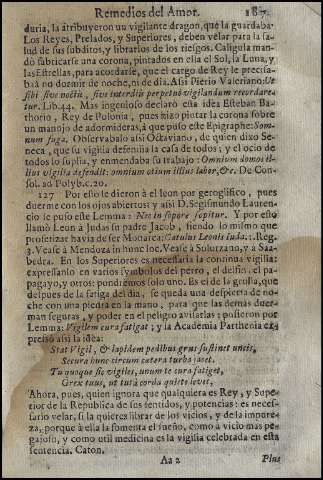 Remedios del Amor. 187.
duria, la atribuyeron un vigilante dragon, que la guardaba.
Los Reyes, Prelados, y Superiores, deben velar para la sa-
lud de sus subditos, y librarlos de los riesgos. Caligula man-
dò fabricarse una corona, pintados en ella el Sol, la Luna, y
las Estrellas, para acordarse, que el cargo de Rey le precisa-
ba no dormir de noche, ni de dia. Asi Pierio Valeriano: Ve
sibi sive noctis, sive interdiù perpetuò vigilandum recordare
tur. Lib. 44. Mas ingenioso declarò esta idea Esteban Ba-
thorio, Rey de Polonia, pues hizo pintar la corona sobre
un manojo de adormideras, à que puso este Epigraphe: Som-
num fuga. Observabalo asi Octaviano, de quien dixo Se-
neca, que su vigilia defendia la casa de todos; y el ocio de
todos lo suplia, y enmendaba su trabajo: Omnium domos il-
lius vigilia defendit: omnium otium illius labor, &c. De Con-
sol. ad Polyb. c. 20.
127 Por esto le dieron à el leon por geroglifico, pues
duerme con los ojos abiertos: y asi D. Segismundo Lauren-
cio le puso este Lemma: Nec in sopore sopitur. Y por esto
llamò Leon à Judas su padre Jacob, siendo lo mismo que
profetizar havia de ser Monarca: Catulus Leonis Iuda. 1. Reg.
3. Vease à Mendoza in hunc loc. Vease à Solorzano, y à Sa-
bedra. En los Superiores es necesaria la continua vigilia:
expresanlo en varios symbolos del perro, el delfin, el pa-
pagayo, y otros: pondremos solo uno. Es el de la grulla, que
despues de la fatiga del dia, se queda una despierta de no-
che con una piedra en la mano, para que las demás duer-
man seguras, y poder en el peligro avisarlas: pusieron por
Lemma: Vigilem cura fatigat; y la Academia Parthenia ex-
presò asi la idea:
Stat Vigil, & lapidem pedibus grus sustinet uncis,
Secura hunc circum cætera turba jacet.
Tu quoque sic vigiles, unum te cura fatiget,
Grex tuus, ut tutâ corda quiete levet,
Ahora, pues, quien ignora que qualquiera es Rey, y Supe-
rior de la Republica de sus sentidos, y potencias: es neces-
fario velar, si la quieres librar de los vicios, y de la impure-
za, porque à ella la fomenta el sueño, como à vicio mas pe-
gajoso, y como util medicina es la vigilia celebrada en esta
sentencia. Caton.
Aa 2 Plus